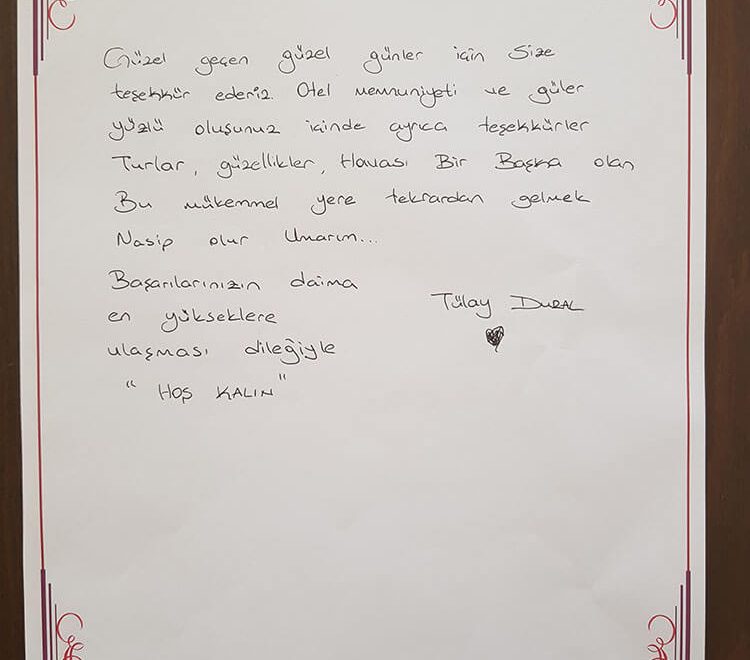 Güzel geçen güzel günler için Size
teşekkür ederiz. Otel memnuniyeti ve güler
yüzlü oluşunuz içinde ayrıca teşekkürler
Turlar, güzellikler, Havası Bir Başka olan
Bu mükemmel yere tekrardan gelmek
Nasip olur Umarım...
Başarılarınızın daima
en yükseklere
ulaşması dileğiyle
"HOŞ KALIN"
Tülay DURAL